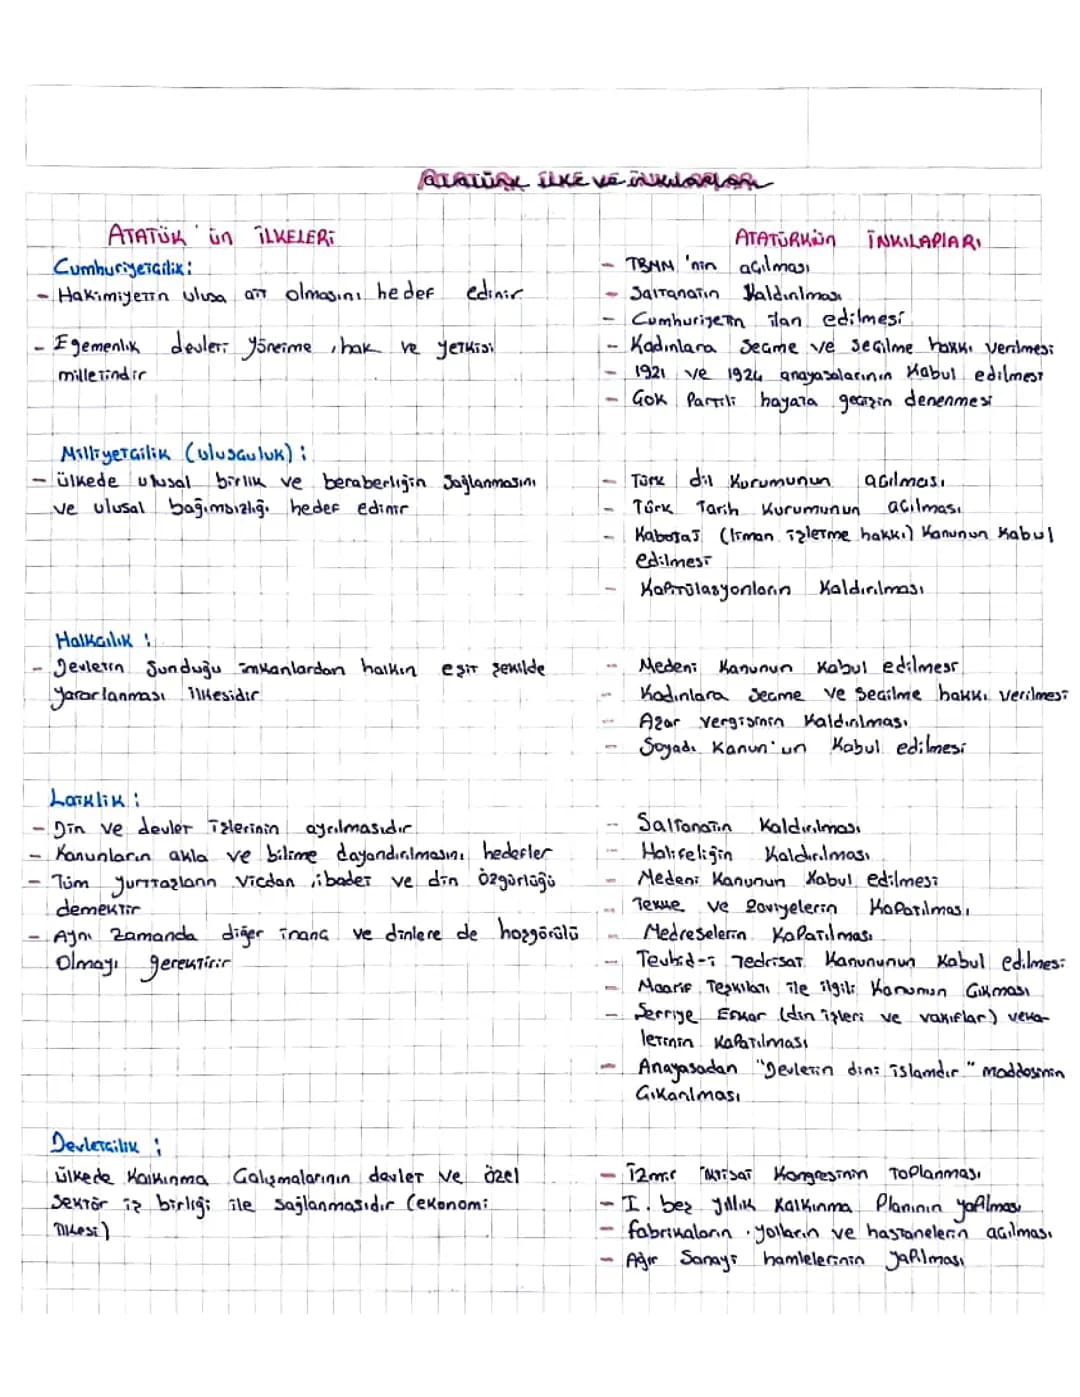 ATATÜRK İLKE VE İNKILAPLARI
ATATÜK'ün İLKELERİ
Cumhuriyetçilik:
- Hakimiyetin ulusa ait olmasını hedef edinir
- Egemenlik devleti yönetme, hak ve yetkisi
milletindir
Milliyetçilik (ulusçuluk):
- ülkede ulusal birlik ve beraberliğin sağlanmasını
ve ulusal bağımsızlığı hedef edinir
Halkçılık:
- Devletin sunduğu imkanlardan halkın eşit şekilde
yararlanması ilkesidir
Laiklik:
- Din ve devlet işlerinin ayrılmasıdır
- Kanunların akla ve bilime dayandırılmasını hedefler
- Tüm yurttaşların vicdan, ibadet ve din özgürlüğü
demektir
- Aynı zamanda diğer inanç ve dinlere de hoşgörülü
Olmayı gerektirir
Devletçilik:
ülkede kalkınma Çalışmalarının devlet ve özel
sektör iş birliği ile sağlanmasıdır (ekonomi
ilkesi)
ATATÜRKün İNKILAPLARI
- TBMM'nin açılması
- Saltanatın Kaldırılması
- Cumhuriyetin ilan edilmesi
- Kadınlara seçme ve seçilme hakkı verilmesi
- 1921 ve 1924 anayasalarının Kabul edilmesi
- Çok Partili hayata geçişin denenmesi
- Türk dil Kurumunun açılması
- Türk Tarih Kurumunun açılması
- Kabotaj (liman işletme hakkı) Kanunun Kabul
edilmesi
- Kapitülasyonların Kaldırılması
- Medeni Kanunun Kabul edilmesi
- Kadınlara seçme ve seçilme hakkı verilmesi
- Aşar vergisinin Kaldırılması
- Soyadı Kanun'un Kabul edilmesi
- Saltanatın Kaldırılması
- Halifeliğin Kaldırılması
- Medeni Kanunun Kabul edilmesi
- Tekke ve Zaviyelerin Kapatılması
- Medreselerin Kapatılması
- Tevhid-i Tedrisat Kanununun Kabul edilmesi
- Maarif Teşkilatı ile ilgili Kanunun Çıkması
- Şerriye Efkar (din işleri ve vakıflar) veka-
letinin Kapatılması
- Anayasadan "Devletin dini islamdır" maddesinin
Çıkarılması
- İzmir iktisat Kongresinin Toplanması
- I. beş yıllık Kalkınma Planının yapılması
- fabrikaların, yolların ve hastanelerin açılması
- Ağır Sanayi hamlelerinin yapılması